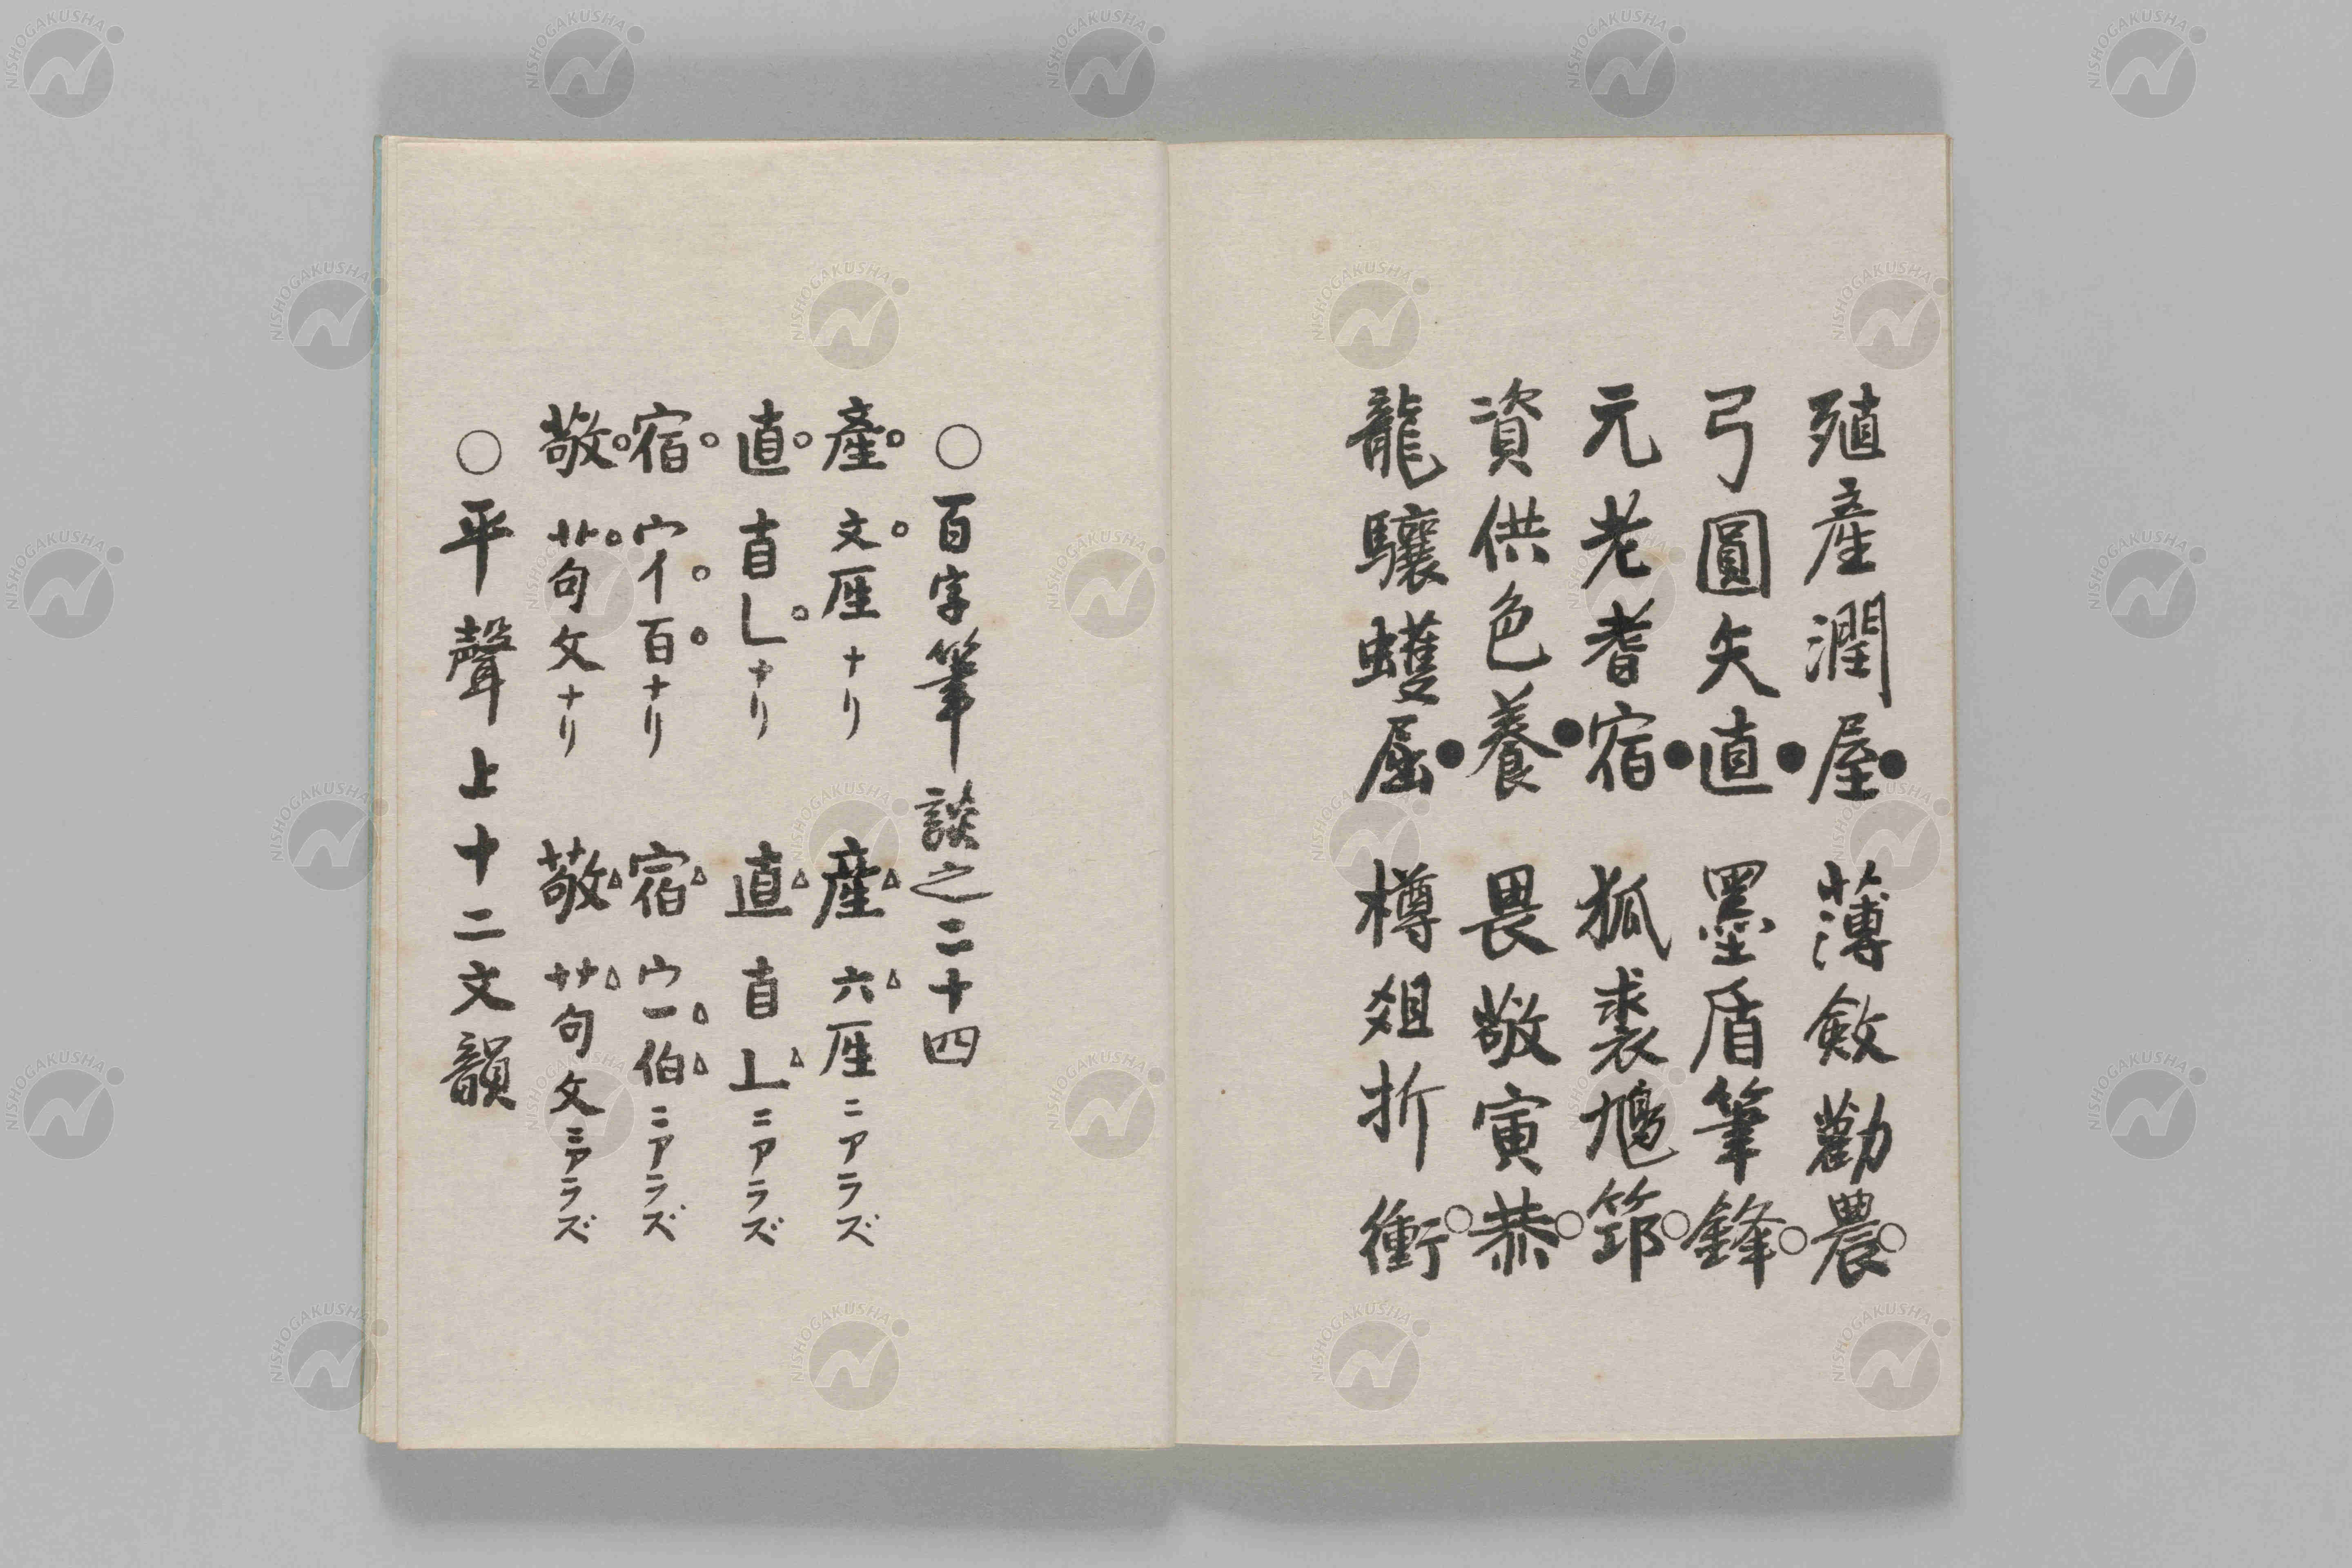 殖產潤屋●　薄斂勸農○
弓圓矢直●　墨盾筆鋒○
元老耆宿●　狐裘鳩筇○
資供色養●　畏敬寅恭○
龍驤蠖屈●　樽俎折衝○
○百字筆談之二十四
產○　文○厓ナリ　産△　六△厓ニアラズ
直○　𥃭乚○ナリ　直△　𥃭丄△ニアラズ
宿○　宀亻○百○ナリ　宿△　宀一△伯△ニアラズ
敬○　艹○句攵ナリ　敬△　艹△句攵ニアラズ
○平聲上十二文韻
NISHOGAKUSHA